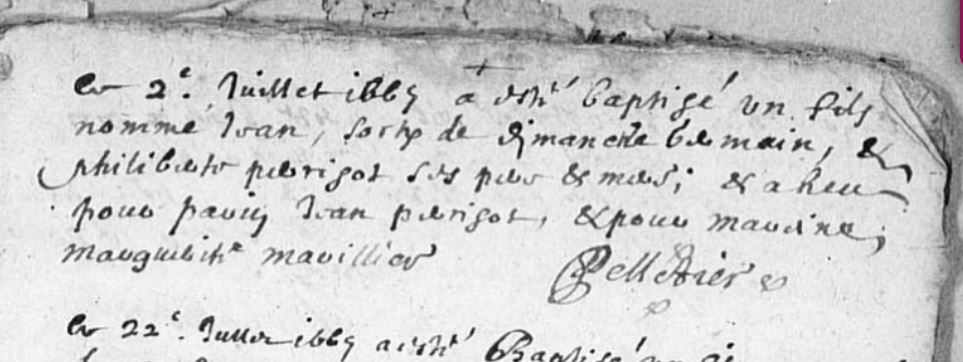 Le 2e. Juillet 1669 a esté baptisé un fils
nommé Jean, sorty de dimanche bermain, &
philiberte perrigot ses pere & mere; & a heu
pour parin Jean perrigot, & pour marraine;
marguerite mavillier Pelletier
Le 22e. Juillet 1669 a esté Baptisé un